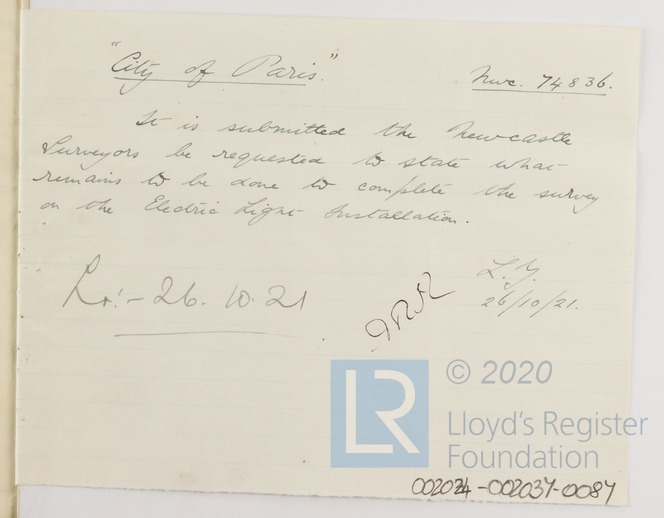 "City of Paris."
Nwc. 74836.
It is submitted the Newcastle
Surveyors be requested to state what
remains to be done to complete the survey
on the Electric Light Installation.
26/10/21.
26.10.21
LR
© 2020
Lloyd's Register
Foundation
002024-002037-0087